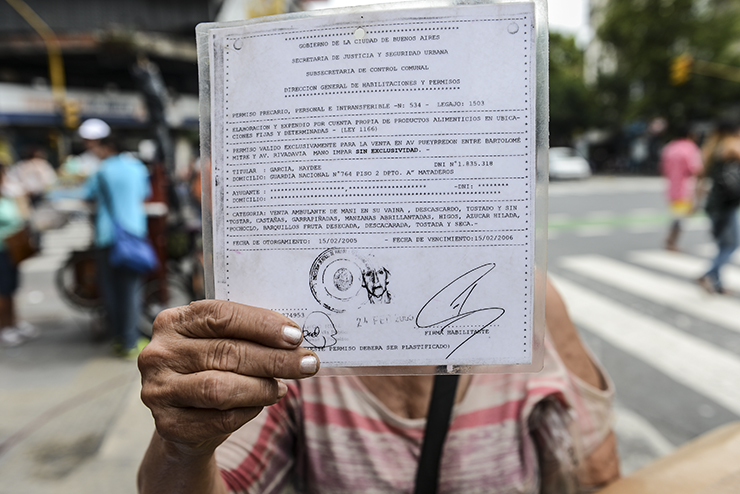 GOBIERNO DE LA CIUDAD DE BUENOS AIRES
SECRETARIA DE JUSTICIA Y SEGURIDAD URBANA
SUBSECRETARIA DE CONTROL COMUNAL
DIRECCION GENERAL DE HABILITACIONES Y PERMISOS
PERMISO PRECARIO, PERSONAL E INTRANSFERIBLE -N: 534 - LEGAJO: 1503
ELABORACION Y EXPENDIO POR CUENTA PROPIA DE PRODUCTOS ALIMENTICIOS EN UBICA-
CIONES FIJAS Y DETERMINADAS - (LEY 1166)
PERMISO VALIDO EXCLUSIVAMENTE PARA LA VENTA EN AV PUEYRREDON ENTRE BARTOLOMÉ
MITRE Y AV. RIVADAVIA MANO IMPAR SIN EXCLUSIVIDAD.
TITULAR : GARCIA, HAYDEE DNI N°1.835.318
DOMICILIO: GUARDIA NACIONAL N°764 PISO 2 DPTO. A° MATADEROS
AYUDANTE : - DNI:
DOMICILIO:
CATEGORIA: VENTA AMBULANTE DE MANI EN SU VAINA , DESCASCARDO, TOSTADO Y SIN
TOSTAR, CASTAÑAS, GARRAPIÑADAS, MANZANAS ABRILLANTADAS, HIGOS, AZUCAR HILADA,
POCHOCLO, BARQUILLOS FRUTA DESECADA, DESCACARADA, TOSTADA Y SECA.
FECHA DE OTORGAMIENTO: 15/02/2005 - FECHA DE VENCIMIENTO:15/02/2006
24 FEB
FIRMA HABILITANTE
PERMISO DEBERA SER PLASTIFICADO)